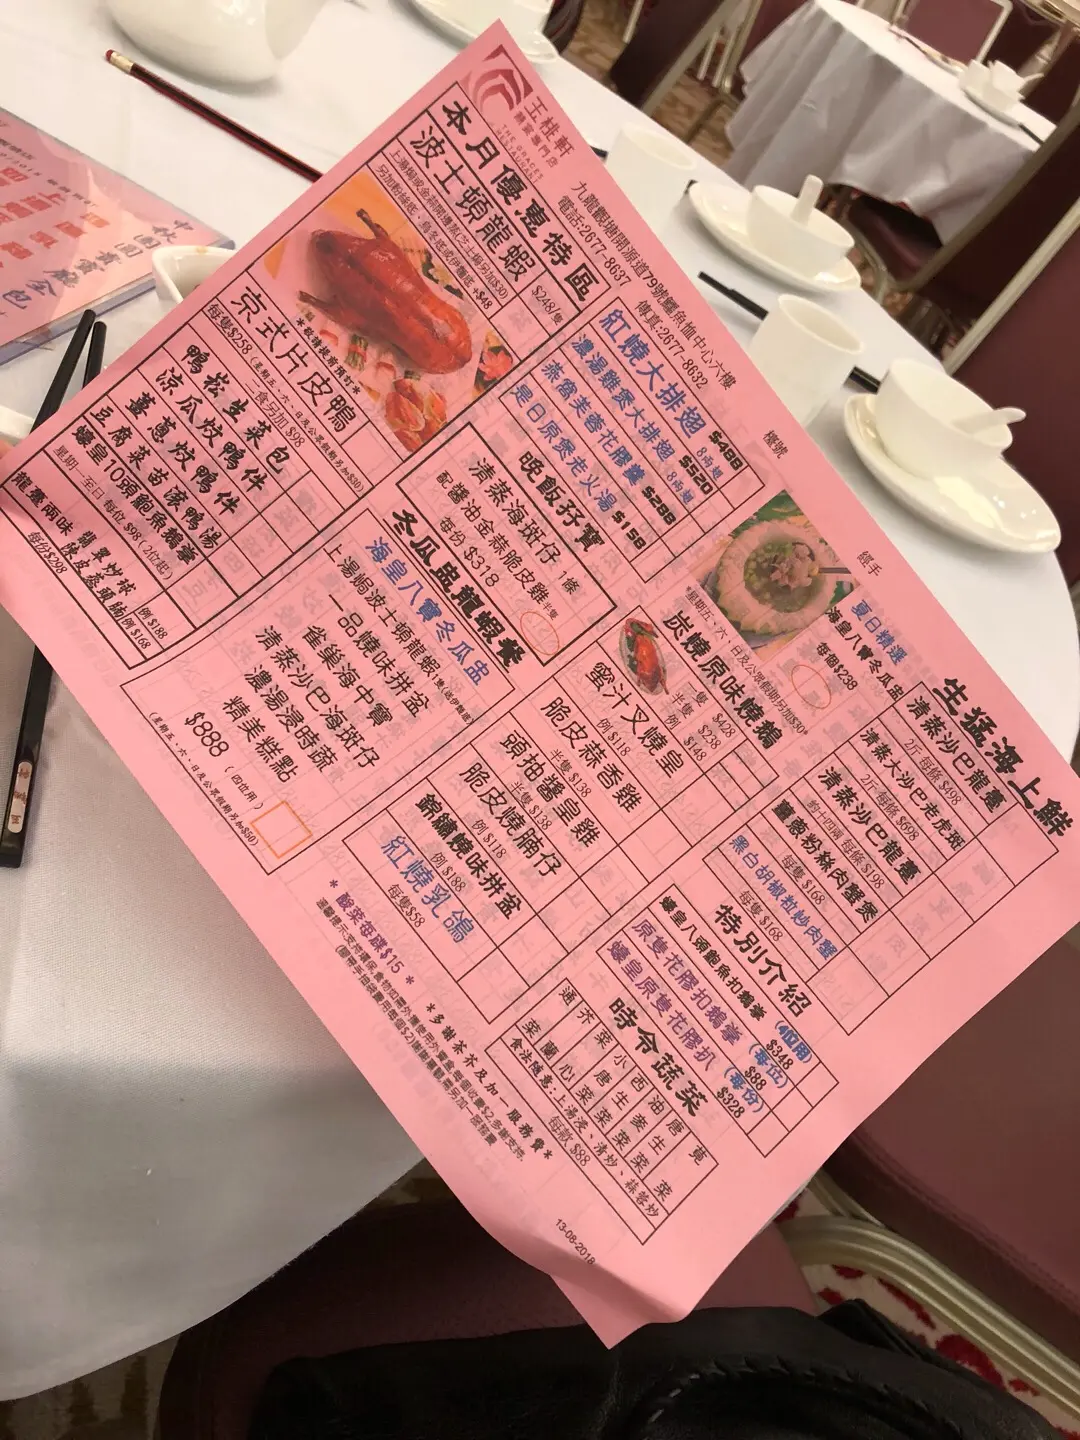 玉桃軒
龍蝦專門店
THE GRACES
RESTAURANT
九龍觀塘開源道79號鱷魚恤中心六樓
電話:2677-8637
傳真:2677-8632
檯號
經手
本月優惠特區
波士頓龍蝦
$248/隻
另加粉絲底，烏冬底或伊麵底 +$48
*敬請提前預訂*
京式片皮鴨
每隻$258 (星期五、六、日及公眾假期另加$30)
二食另加 $98
鴨崧生菜包
涼瓜炆鴨件
薑蔥炆鴨件
豆腐菜苗滾鴨湯
蠔皇10頭鮑魚鵝掌
星期一至日 每位 $98 (2位起)
龍躉兩味
每份$298
翡翠炒球 例 $188
例 $168
紅燒大排翅 8兩翅 $488
濃湯雞煲大排翅 8兩翅 $520
燕窩芙蓉花膠羹 $288
是日原煲老火湯 $158
晚飯孖寶
清蒸海斑仔 1條
配醬油金蒜脆皮雞 半隻
每份 $318
冬瓜盅龍蝦餐
海皇八寶冬瓜盅
上湯焗波士頓龍蝦
一品燒味拼盆
雀巢海中寶
清蒸沙巴海斑仔
濃湯浸時蔬
精美糕點
$888 (四位用)
(星期五、六、日及公眾假期另加$50)
夏日精選
海皇八寶冬瓜盅
每個$238
*星期五、六、日及公眾假期另加$30*
炭燒原味燒鵝
一隻 $428
半隻 $238
例 $148
蜜汁叉燒皇
例 $118
脆皮蒜香雞
半隻 $138
頭抽醬皇雞
半隻 $138
脆皮燒腩仔
例 $118
錦繡燒味拼盆
例 $188
紅燒乳鴿
每隻$58
生猛海上鮮
清蒸沙巴龍躉
2斤 每條 $498
清蒸大沙巴老虎斑
2斤 每條 $698
清蒸沙巴龍躉
約十四兩 每條 $198
薑蔥粉絲肉蟹煲
每隻 $168
黑白胡椒粒炒肉蟹
每隻 $168
特別介紹
蠔皇八頭鮑魚扣鵝掌 (4位用) $348
原隻花膠扣鵝掌 (每位) $88
蠔皇原隻花膠扒 (每份) $328
時令蔬菜
通菜 芥蘭 菜心 小唐菜 西生菜 油麥菜 唐生菜 莧菜
食法隨意:上湯浸、清炒、蒜蓉炒
每款 $88
* 酸菜每碟$15 *
*多謝茶芥及加一服務費*
13-08-2018